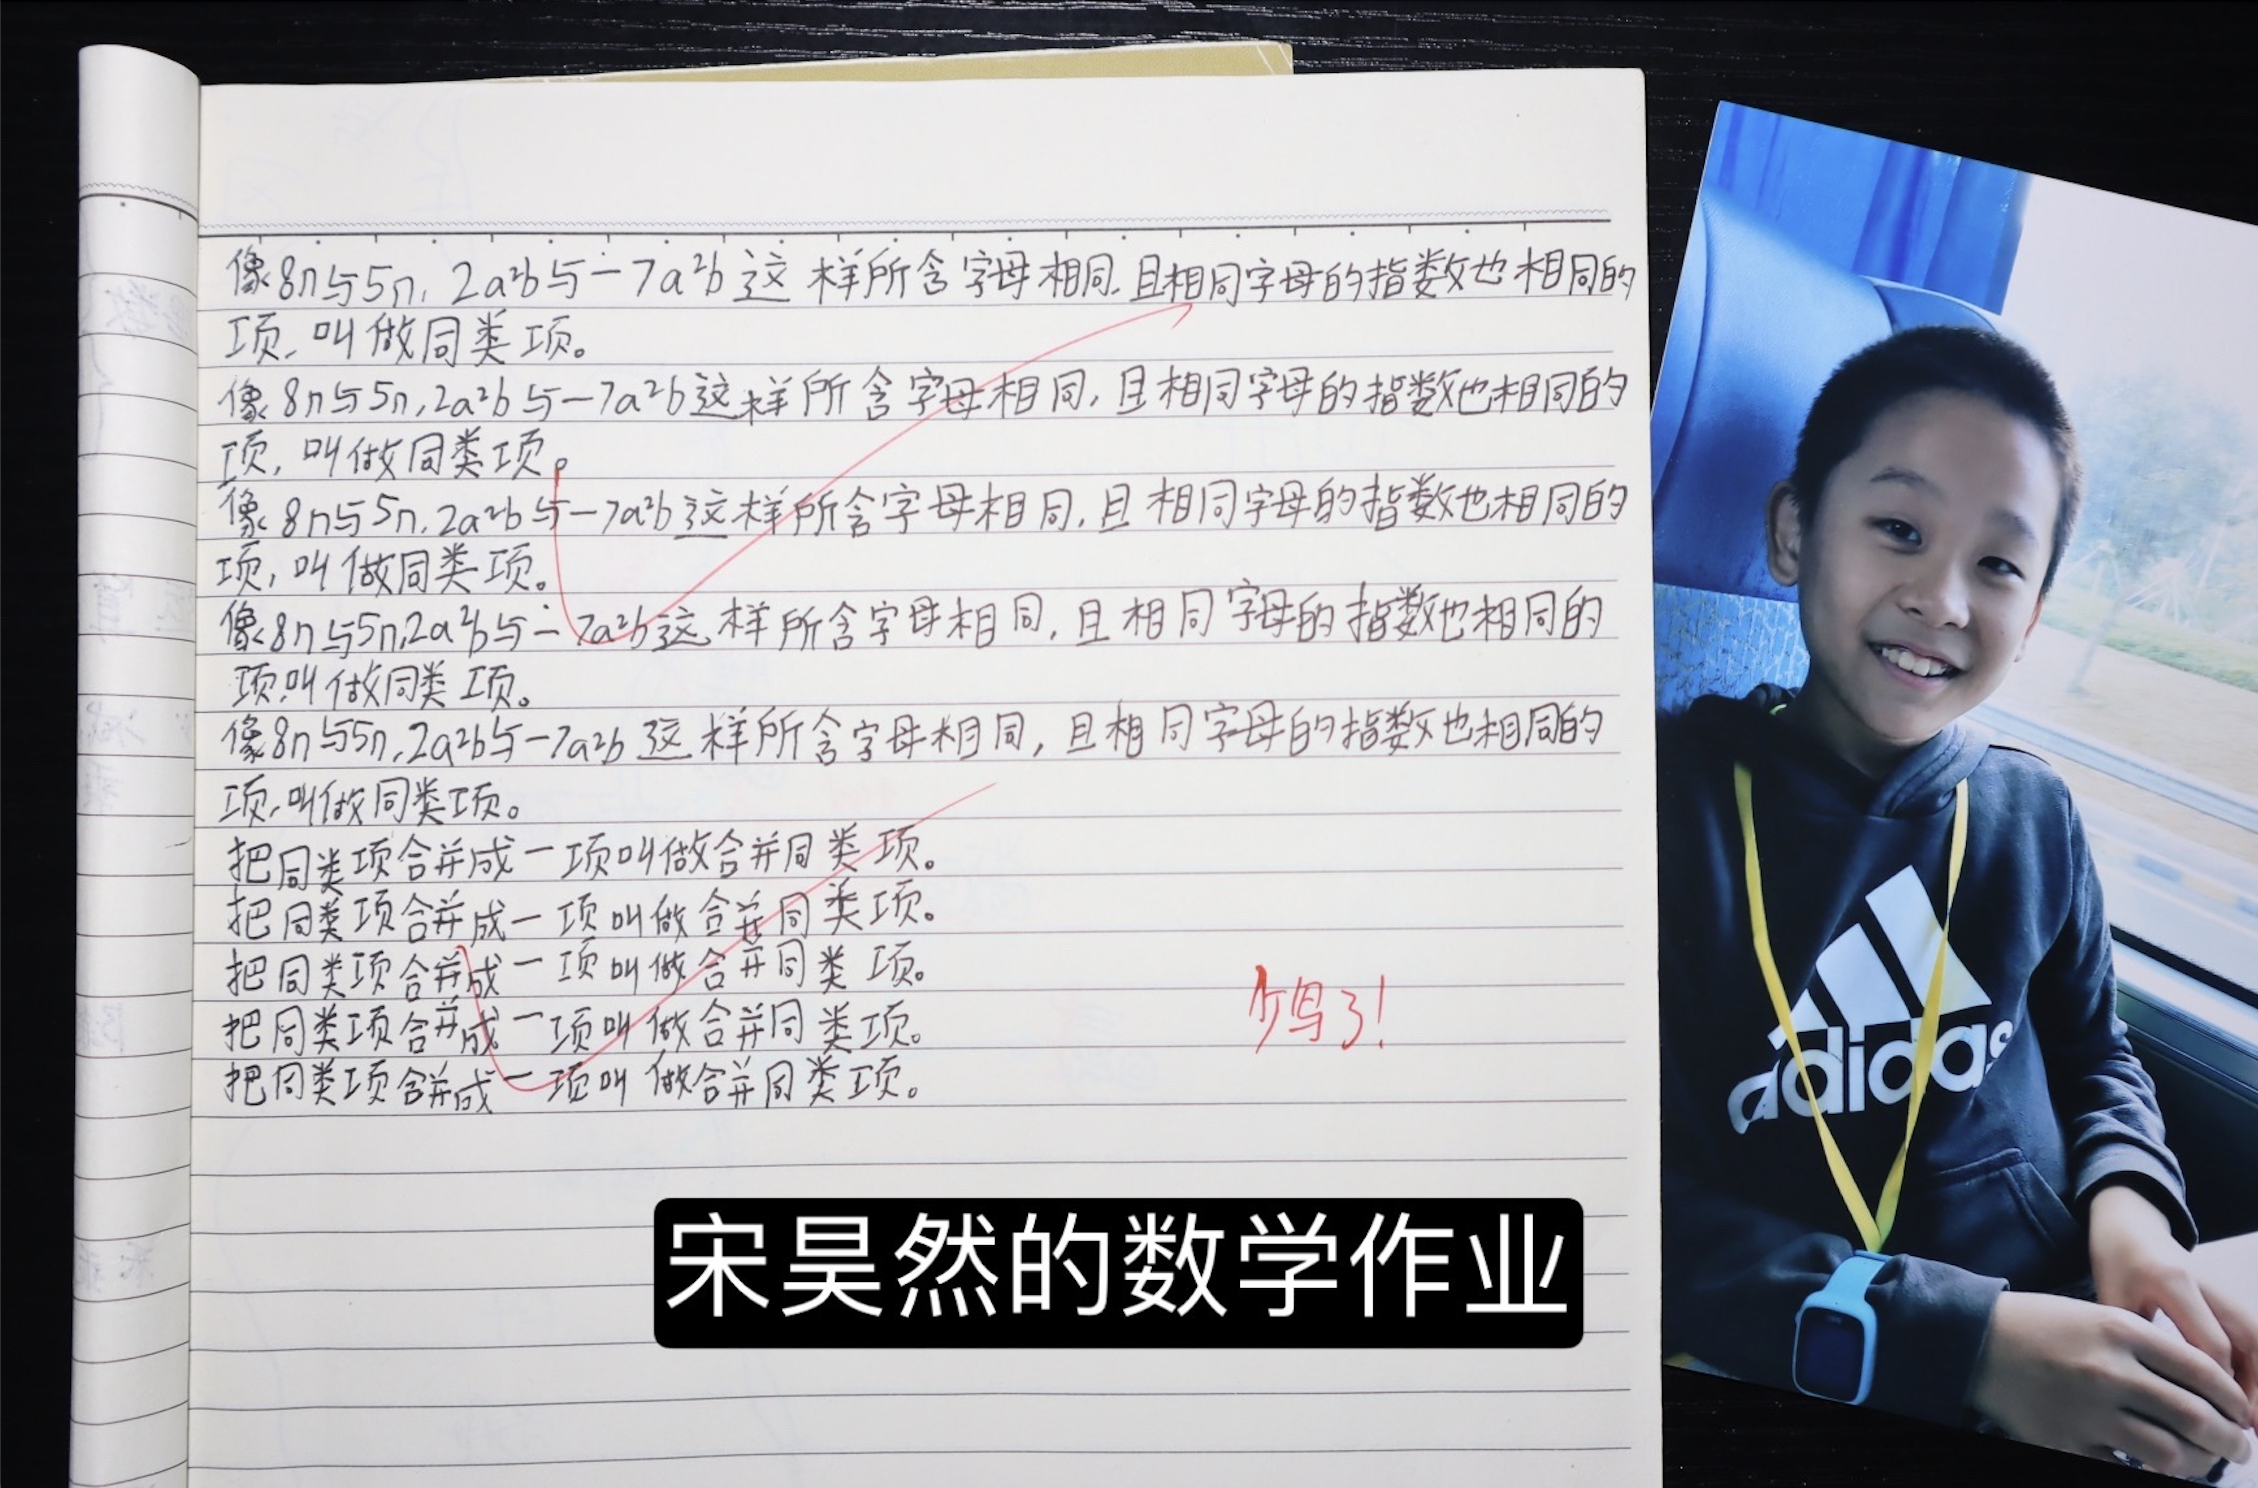 像8n与5n,2a²b与-7a²b这样所含字母相同,且相同字母的指数也相同的
项,叫做同类项。
像8n与5n,2a²b与-7a²b这样所含字母相同,且相同字母的指数也相同的
项,叫做同类项。
像8n与5n,2a²b与-7a²b这样所含字母相同,且相同字母的指数也相同的
项,叫做同类项。
像8n与5n,2a²b与-7a²b这样所含字母相同,且相同字母的指数也相同的
项,叫做同类项。
像8n与5n,2a²b与-7a²b这样所含字母相同,且相同字母的指数也相同的
项,叫做同类项。
把同类项合并成一项叫做合并同类项。
把同类项合并成一项叫做合并同类项。
把同类项合并成一项叫做合并同类项。
把同类项合并成一项叫做合并同类项。
把同类项合并成一项叫做合并同类项。
了!
adidas
宋昊然的数学作业